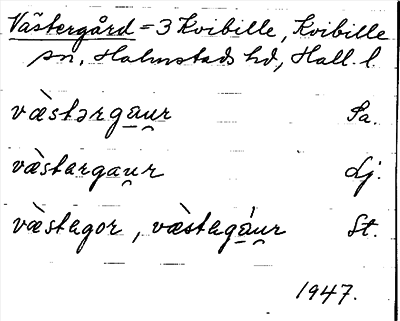 Västergård = 3 Kvibille, Kvibille
sn, Halmstads hd, Hall. l.
væ̀stərga̲u̯r Sa.
væ̀stərgau̯r Lj.
væ̀stagor, væ̀staga̲̍u̯r St.
1947.